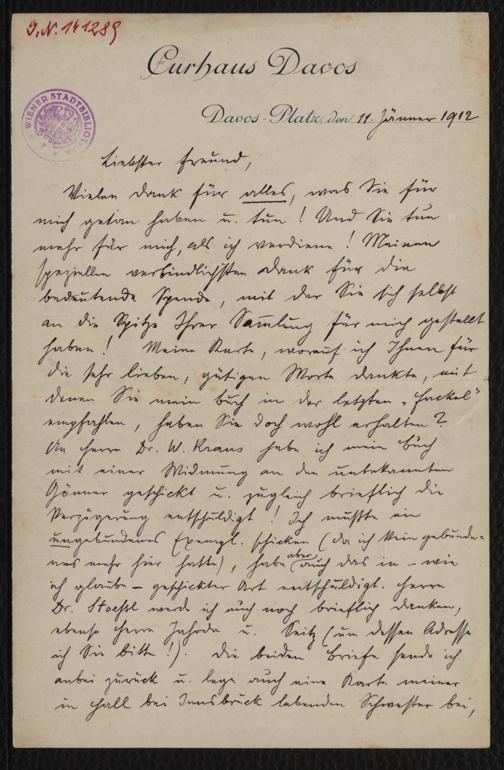 J.N. 141289
Curhaus Davos
WIENER STADTBIBLIOT
Davos-Platz, den 11. Jänner 1912
Liebster Freund,
Vielen Dank für alles, was Sie für
mich getan haben u. tun! Und Sie tun
mehr für mich, als ich verdiene! Meinen
speziellen verbindlichsten Dank für die
bedeutende Spende, mit der Sie sich selbst
an die Spitze Ihrer Sam̅lung für mich gestellt
haben! Meine Karte, worauf ich Ihnen für
die sehr lieben, gütigen Worte dankte, mit
denen Sie mein Buch in der letzten „Fackel"
empfahlen, haben Sie doch wohl erhalten?
An Herrn Dr. W. Kraus habe ich mein Buch
mit einer Widmung an den unbekannten
Gönner geschickt u. zugleich brieflich die
Verzögerung entschuldigt! Ich mußte ein
ungebundenes Exempl. schicken (da ich kein gebunde-
nes mehr hier hatte), habe aber auch das in – wie
ich glaube – geschickter Art entschuldigt. Herrn
Dr. Stoessl werde ich auch noch brieflich danken,
ebenso Herrn Jahoda u. Seitz (um dessen Adresse
ich Sie bitte!). Die beiden Briefe sende ich
anbei zurück u. lege auch eine Karte meiner
in Hall bei Innsbruck lebenden Schwester bei,